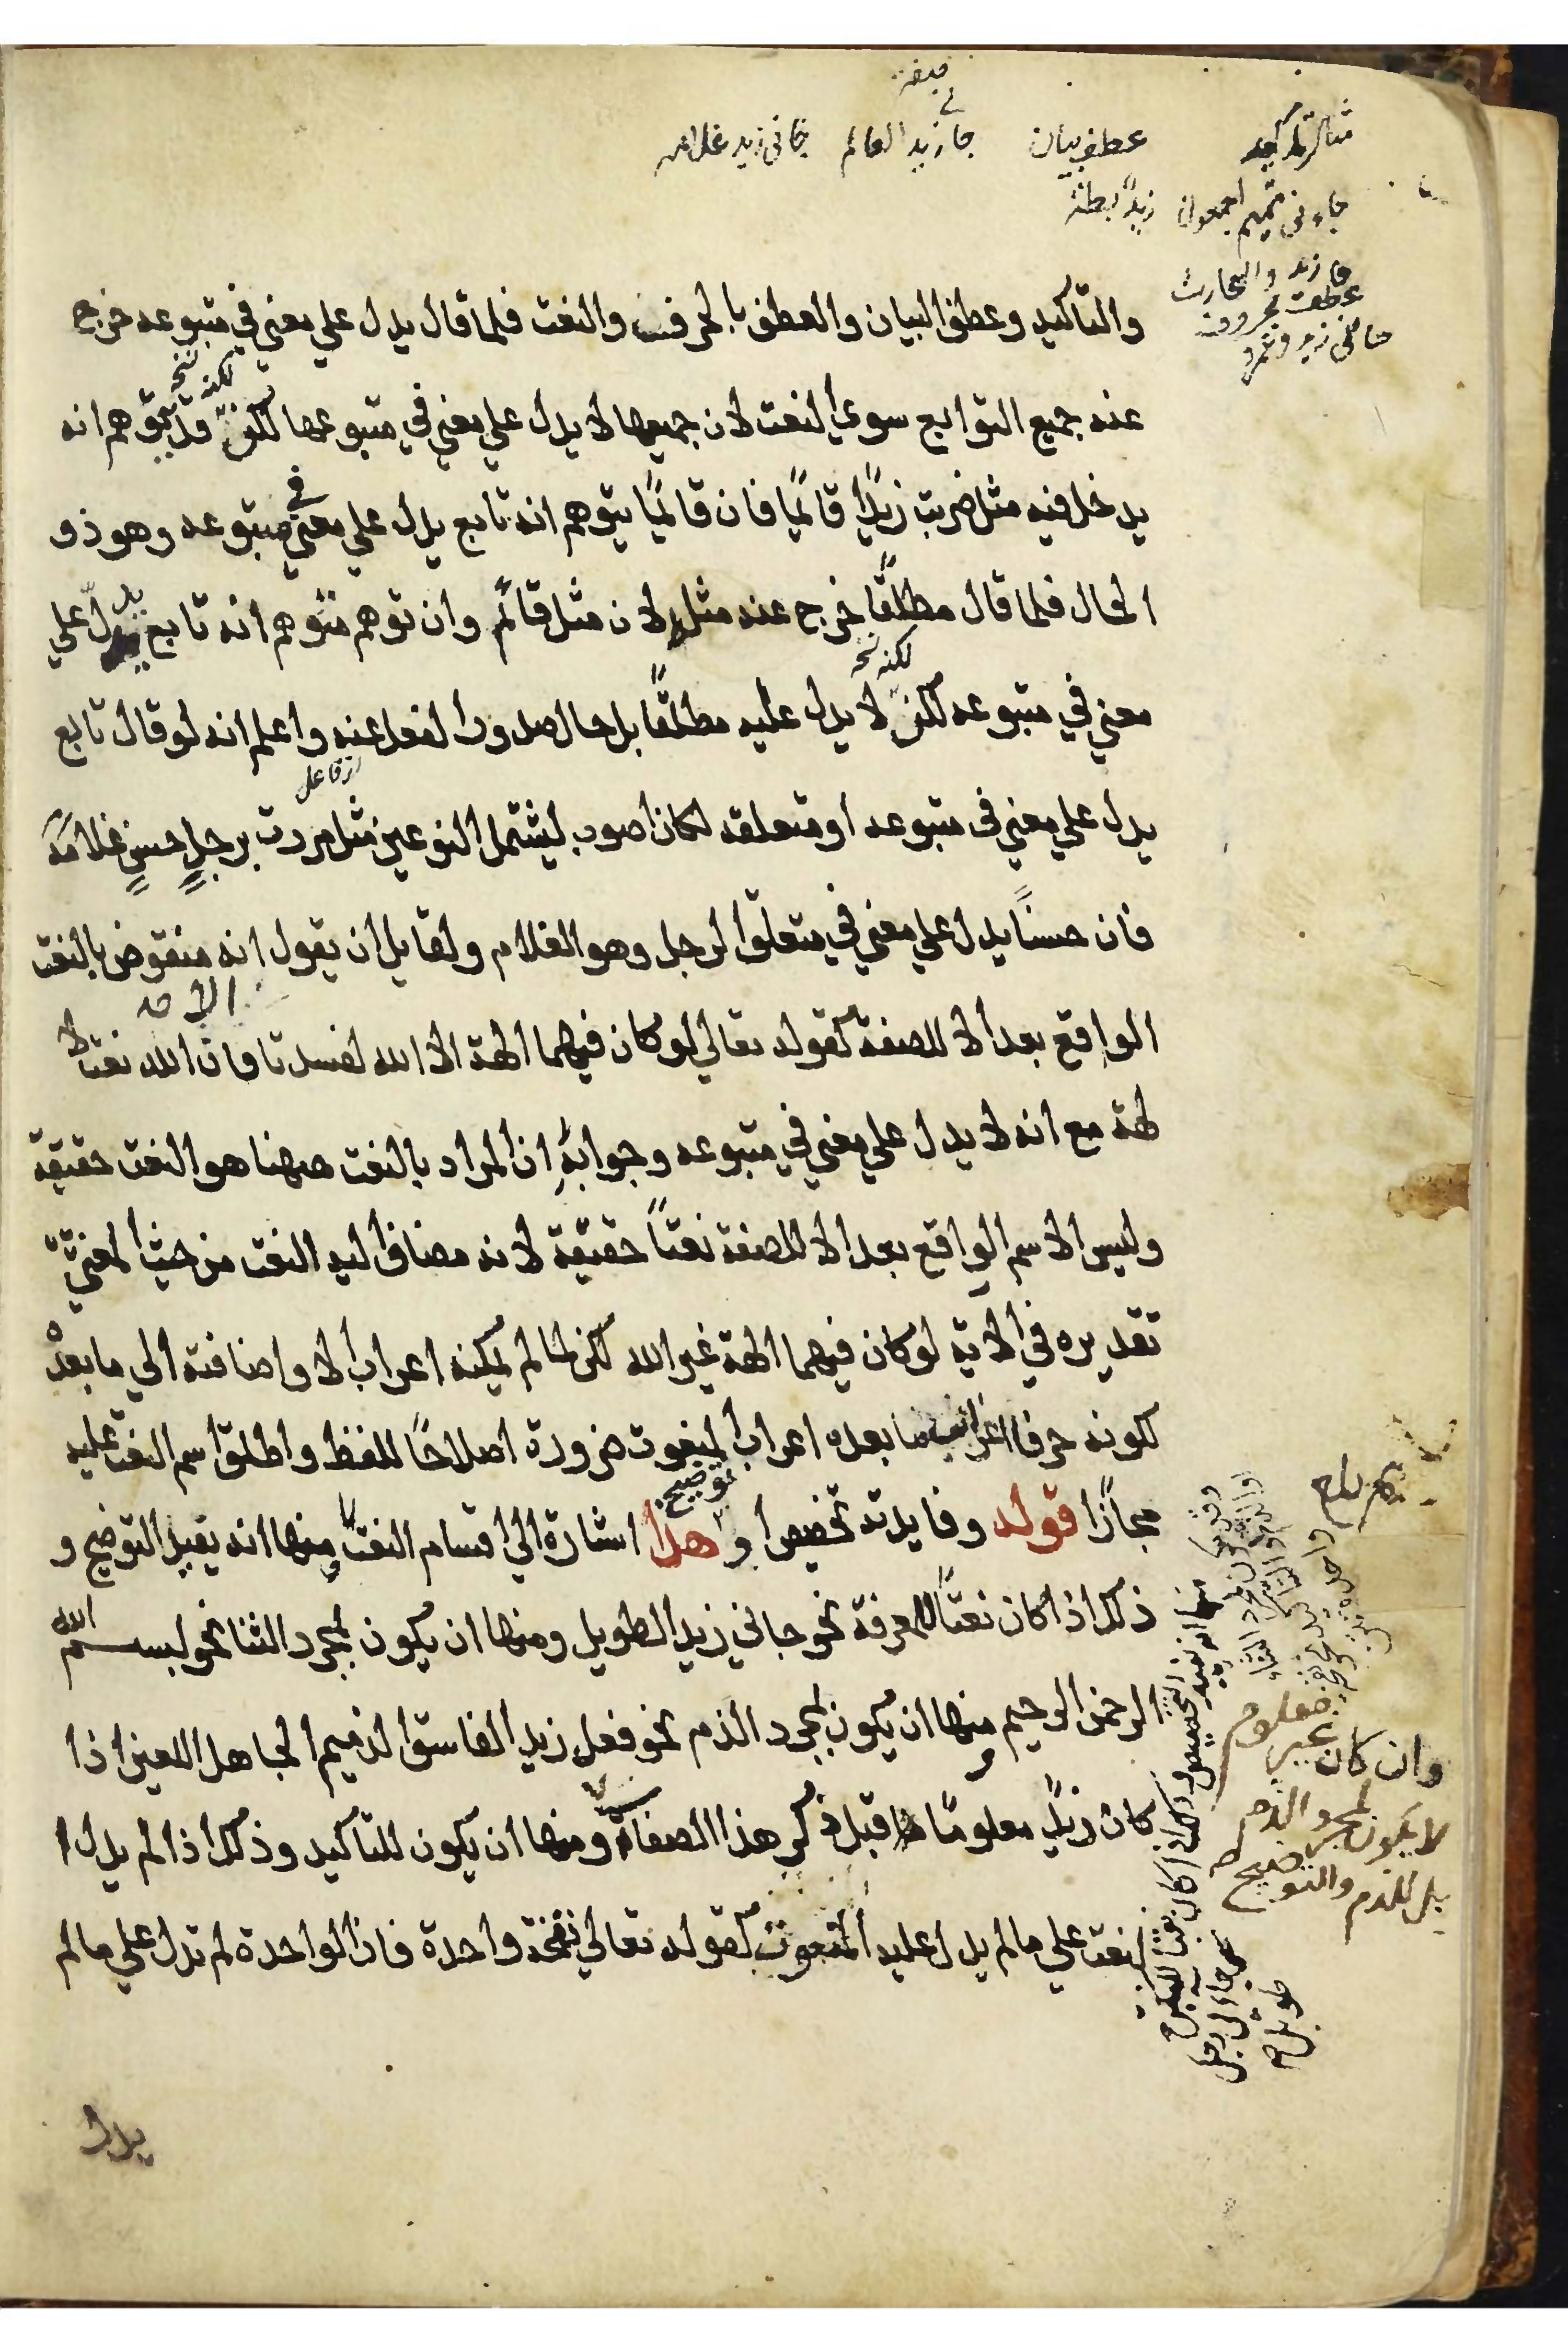 صفة
مثال تاكيد عطف بيان جا زيد العالم جانى زيد غلامه
جاءنى تميم اجمعون زيد بطة
جا زيد والحارث
عطف بحروف
جاءنى زيد وعمرو
والتاكيد وعطف البيان والعطف بالحرف والنعت فلما قال يدل علي معني في متبوعه خرج
لكنه نخ
عنه جميع التوابع سوي النعت لان جميعها لا يدل علي معني في متبوعها لكن قد يتوهم انه
يدخل فيه مثل ضربت زيدًا قائمًا فان قائمًا يتوهم انه تابع يدل علي معني في متبوعه وهو ذو
الحال فلما قال مطلقًا خرج عنه مثله لان مثل قائم وان توهم متوهم انه تابع يدل علي
لكنه نخ
معني في متبوعه لكن لا يدل عليه مطلقًا بل حال صدور الفعل عنه واعلم انه لو قال تابع
يدل علي معني في متبوعه او متعلقه لكان اصوب ليشتمل النوعين مثل مررت برجلٍ حسنٍ غلامه
فان حسنًا يدل علي معني في متعلق الرجل وهو الغلام ولقايل ان يقول انه منقوض بالنعت
الواقع بعد الا للصفة كقوله تعالي لو كان فيهما الهة الا الله لفسدتا فان الله نعت لا
لهة مع انه لا يدل علي معني في متبوعه وجوابه ان المراد بالنعت ههنا هو النعت حقيقة
وليس الاسم الواقع بعد الا للصفة نعتًا حقيقة لانه مضاف اليه النعت من حيث المعني
تقديره في الاية لو كان فيهما الهة غير الله لكن لما لم يمكنه اعراب الا واضافته الي ما بعده
لكونه حرفا اعرابه ما بعده اعراب المنعوت ضرورة اصلاحًا للفظ واطلق اسم النعت عليه
توضيح
مجازًا قوله وفايدته تخصيص او هذا اشارة الي اقسام النعت منها انه يفيد التوضيح و
ذلك اذا كان نعتًا للمعرفة نحو جاني زيد الطويل ومنها ان يكون لمجرد الثنا نحو بسم الله
الرحمن الرحيم ومنها ان يكون لمجرد الذم نحو فعل زيد الفاسق الذميم الجاهل اللعين اذا
كان زيدٌ معلومًا قبل ذكر هذا الصفات ومنها ان يكون للتاكيد وذلك اذا لم يدل ا
لنعت علي ما لم يدل عليه المنعوت كقوله تعالي نفخة واحدة فان الواحدة لم تدل علي ما لم
وان كان غير معلوم
لا يكون لمجرد الذم
بل للذم والتوضيح
منها انه يفيد التخصيص وذلك اذا كان نعتًا للنكرة
نحو جاءنى رجل
طويل
يدل